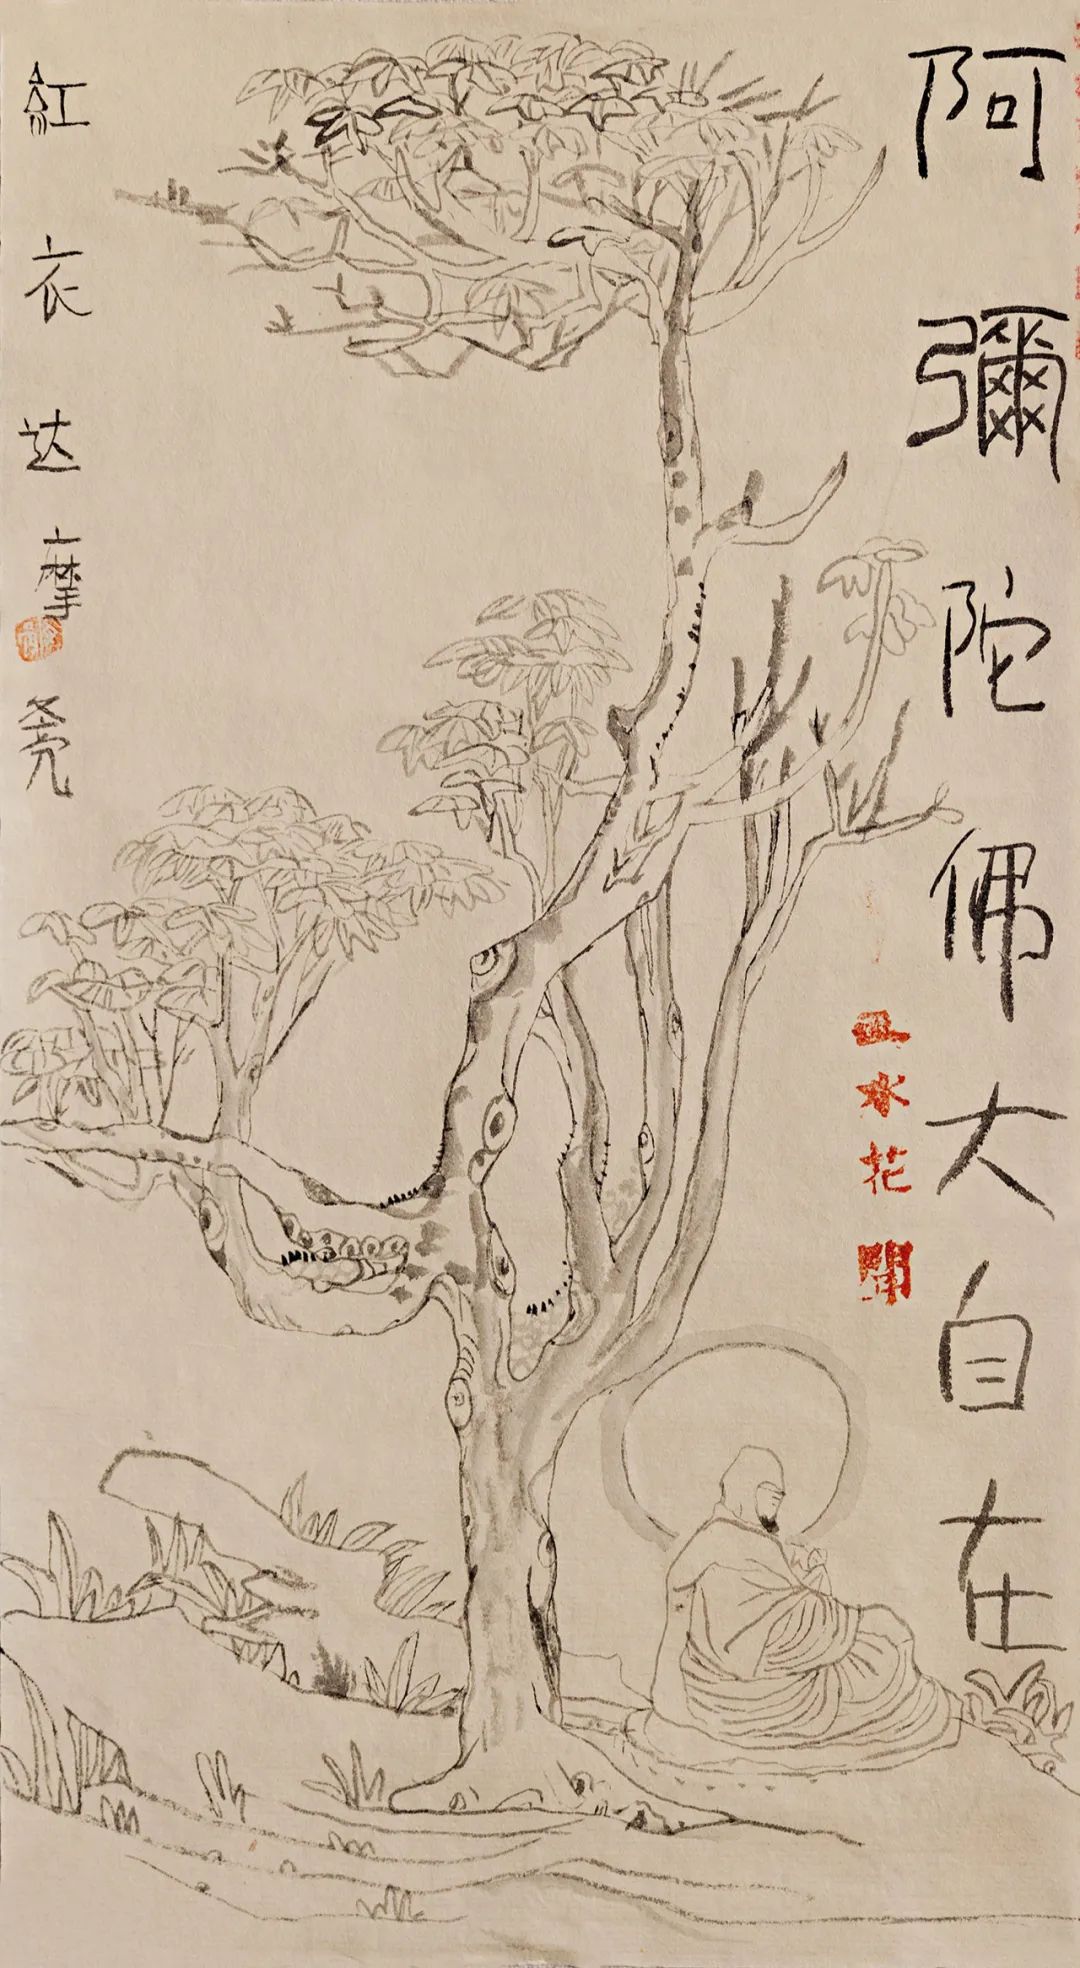 阿彌陀佛大自在
水花開
紅衣达摩
尧